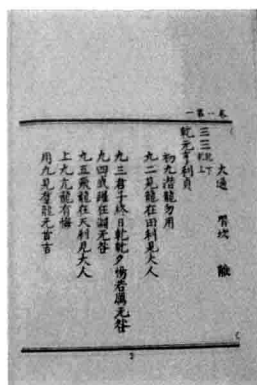 卷一第一
大通
三三乾下乾上
乾元亨利貞
初九潛龍勿用
九二見龍在田利見大人
九三君子終日乾乾夕惕若厲无咎
九四或躍在淵无咎
九五飛龍在天利見大人
上九亢龍有悔
用九見羣龍无首吉